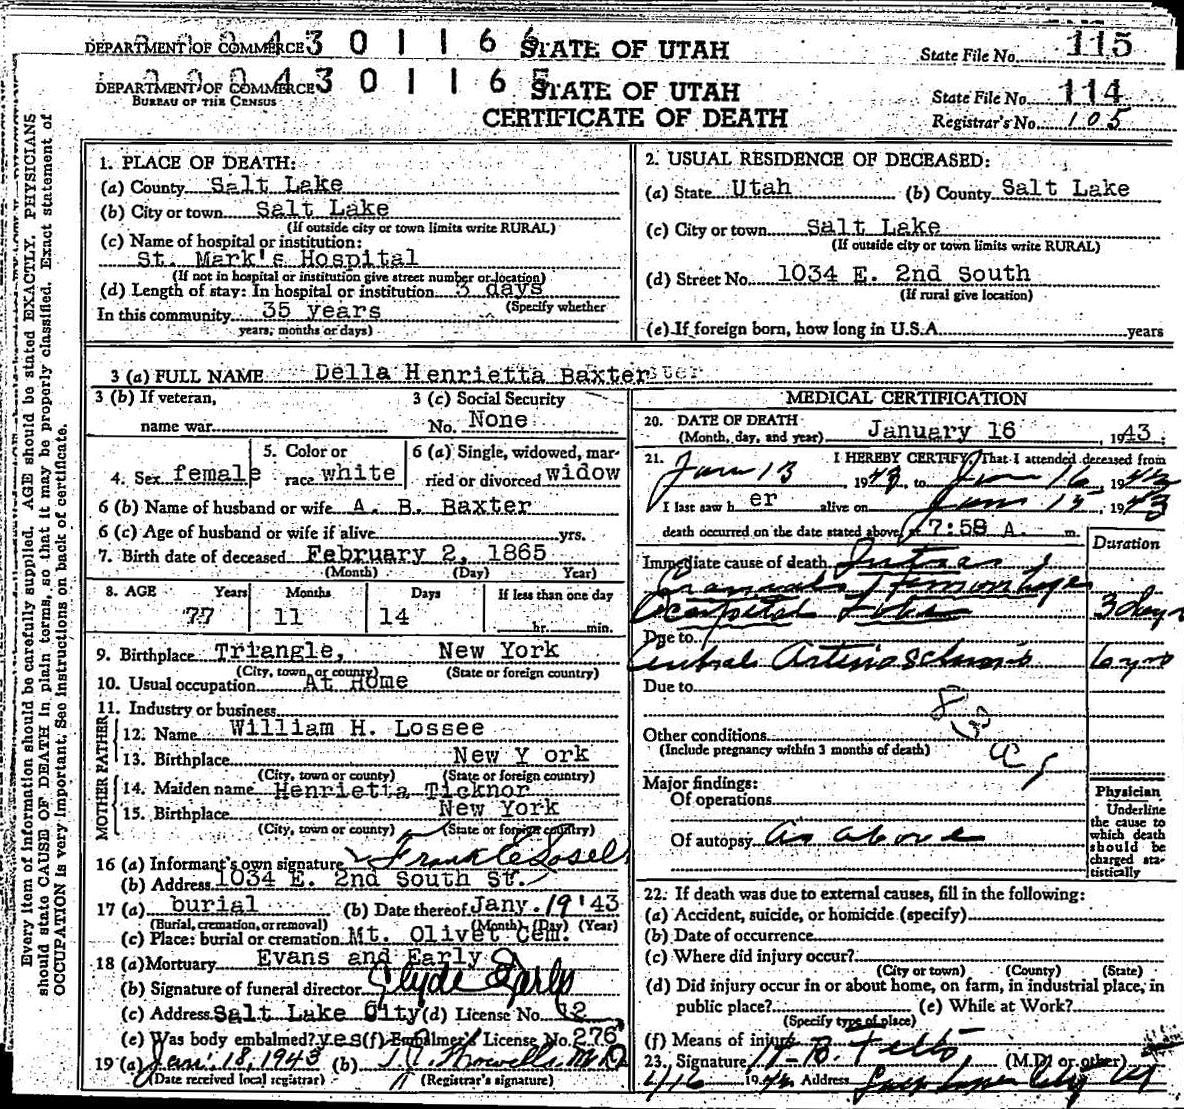 DEPARTMENT OF COMMERCE 3 0 1 1 6 6 STATE OF UTAH State File No. 115
DEPARTMENT OF COMMERCE 3 0 1 1 6 5 STATE OF UTAH State File No. 114
BUREAU OF THE CENSUS CERTIFICATE OF DEATH Registrar's No. 105
Every item of information should be carefully supplied. AGE should be stated EXACTLY. PHYSICIANS
should state CAUSE OF DEATH in plain terms, so that it may be properly classified. Exact statement of
OCCUPATION is very important. See instructions on back of certificate.
1. PLACE OF DEATH:
(a) County Salt Lake
(b) City or town Salt Lake
(If outside city or town limits write RURAL)
(c) Name of hospital or institution:
St. Mark's Hospital
(If not in hospital or institution give street number or location)
(d) Length of stay: In hospital or institution 3 days
(Specify whether
In this community 35 years
years, months or days)
2. USUAL RESIDENCE OF DECEASED:
(a) State Utah (b) County Salt Lake
(c) City or town Salt Lake
(If outside city or town limits write RURAL)
(d) Street No. 1034 E. 2nd South
(If rural give location)
(e) If foreign born, how long in U.S.A. years
3 (a) FULL NAME Della Henrietta Baxter
3 (b) If veteran, 3 (c) Social Security
name war No. None
4. Sex female 5. Color or race white 6 (a) Single, widowed, married or divorced widow
6 (b) Name of husband or wife A. B. Baxter
6 (c) Age of husband or wife if alive yrs.
7. Birth date of deceased February 2, 1865
(Month) (Day) Year)
8. AGE Years Months Days If less than one day
77 11 14 hr. min.
9. Birthplace Triangle, New York
(City, town or county) (State or foreign country)
10. Usual occupation At Home
11. Industry or business
MOTHER FATHER
12. Name William H. Lossee
13. Birthplace New Y ork
(City, town or county) (State or foreign country)
14. Maiden name Henrietta Ticknor
15. Birthplace New York
(City, town or county) (State or foreign country)
16 (a) Informant's own signature Frank
(b) Address 1034 E. 2nd South St.
17 (a) burial (b) Date thereof Jany. 19 '43
(Burial, cremation, or removal) (Month) (Day) (Year)
(c) Place: burial or cremation Mt. Olivet Cem.
18 (a) Mortuary Evans and Early
(b) Signature of funeral director Clyde Early
(c) Address Salt Lake City (d) License No. 2
(e) Was body embalmed? yes (f) Embalmer's License No. 276
19 (a) Jan. 18, 1943 (b) M.D.
(Date received local registrar) (Registrar's signature)
MEDICAL CERTIFICATION
20. DATE OF DEATH
(Month, day, and year) January 16, 1943;
21. I HEREBY CERTIFY, That I attended deceased from
Jan 13 1943, to Jan 16, 1943
I last saw h er alive on Jan 15, 1943
death occurred on the date stated above, at 7:58 A. m.
Duration
Immediate cause of death Intra
Cranial Hemorrhage
Occipital Lobe 3 days
Due to
Cerebral Arteriosclerosis 6 yrs
Due to
Other conditions
(Include pregnancy within 3 months of death)
Major findings:
Of operations
Of autopsy as above
Physician
Underline
the cause to
which death
should be
charged sta-
tistically
22. If death was due to external causes, fill in the following:
(a) Accident, suicide, or homicide (specify)
(b) Date of occurrence
(c) Where did injury occur?
(City or town) (County) (State)
(d) Did injury occur in or about home, on farm, in industrial place, in
public place? (e) While at Work?
(Specify type of place)
(f) Means of injury
23. Signature (M.D. or other)
1/16 Address Salt Lake City